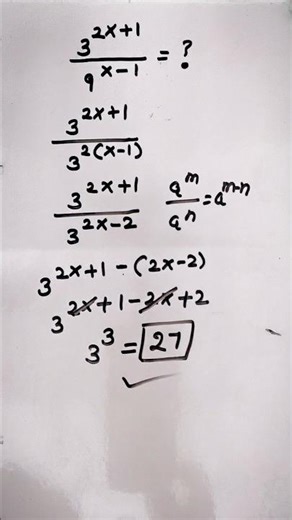 3^(2x+1) / 9^(x-1) = ?
3^(2x+1) / 3^(2(x-1))
3^(2x+1) / 3^(2x-2) a^m / a^n = a^(m-n)
3^(2x+1-(2x-2))
3^(2x+1-2x+2)
3^3 = 27